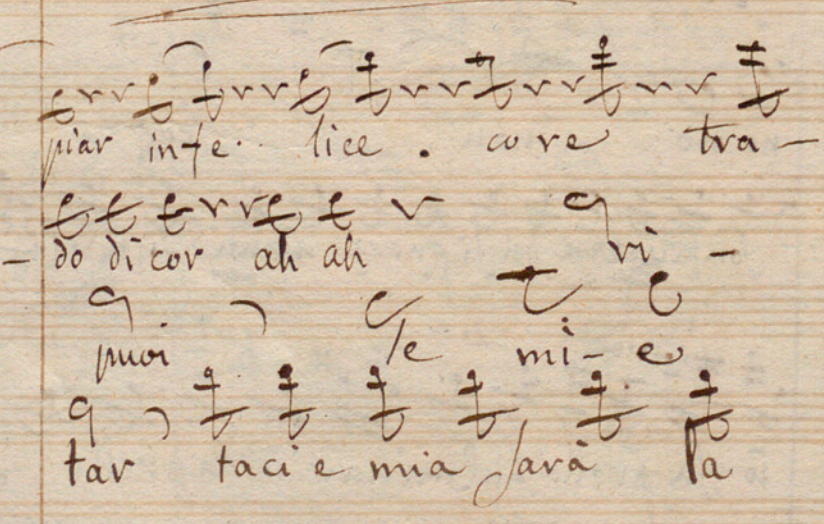 piar infe. lice. core tra-
-do di cor ah ah vi-
puoi Te mi-e
tar taci e mia sarà la